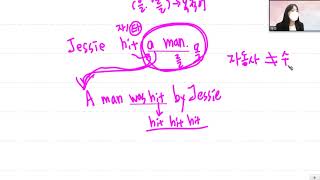 자/타
Jessie hit a man. 을
를
A man was hit by Jessie
hit hit hit
자동사 ≠ 수